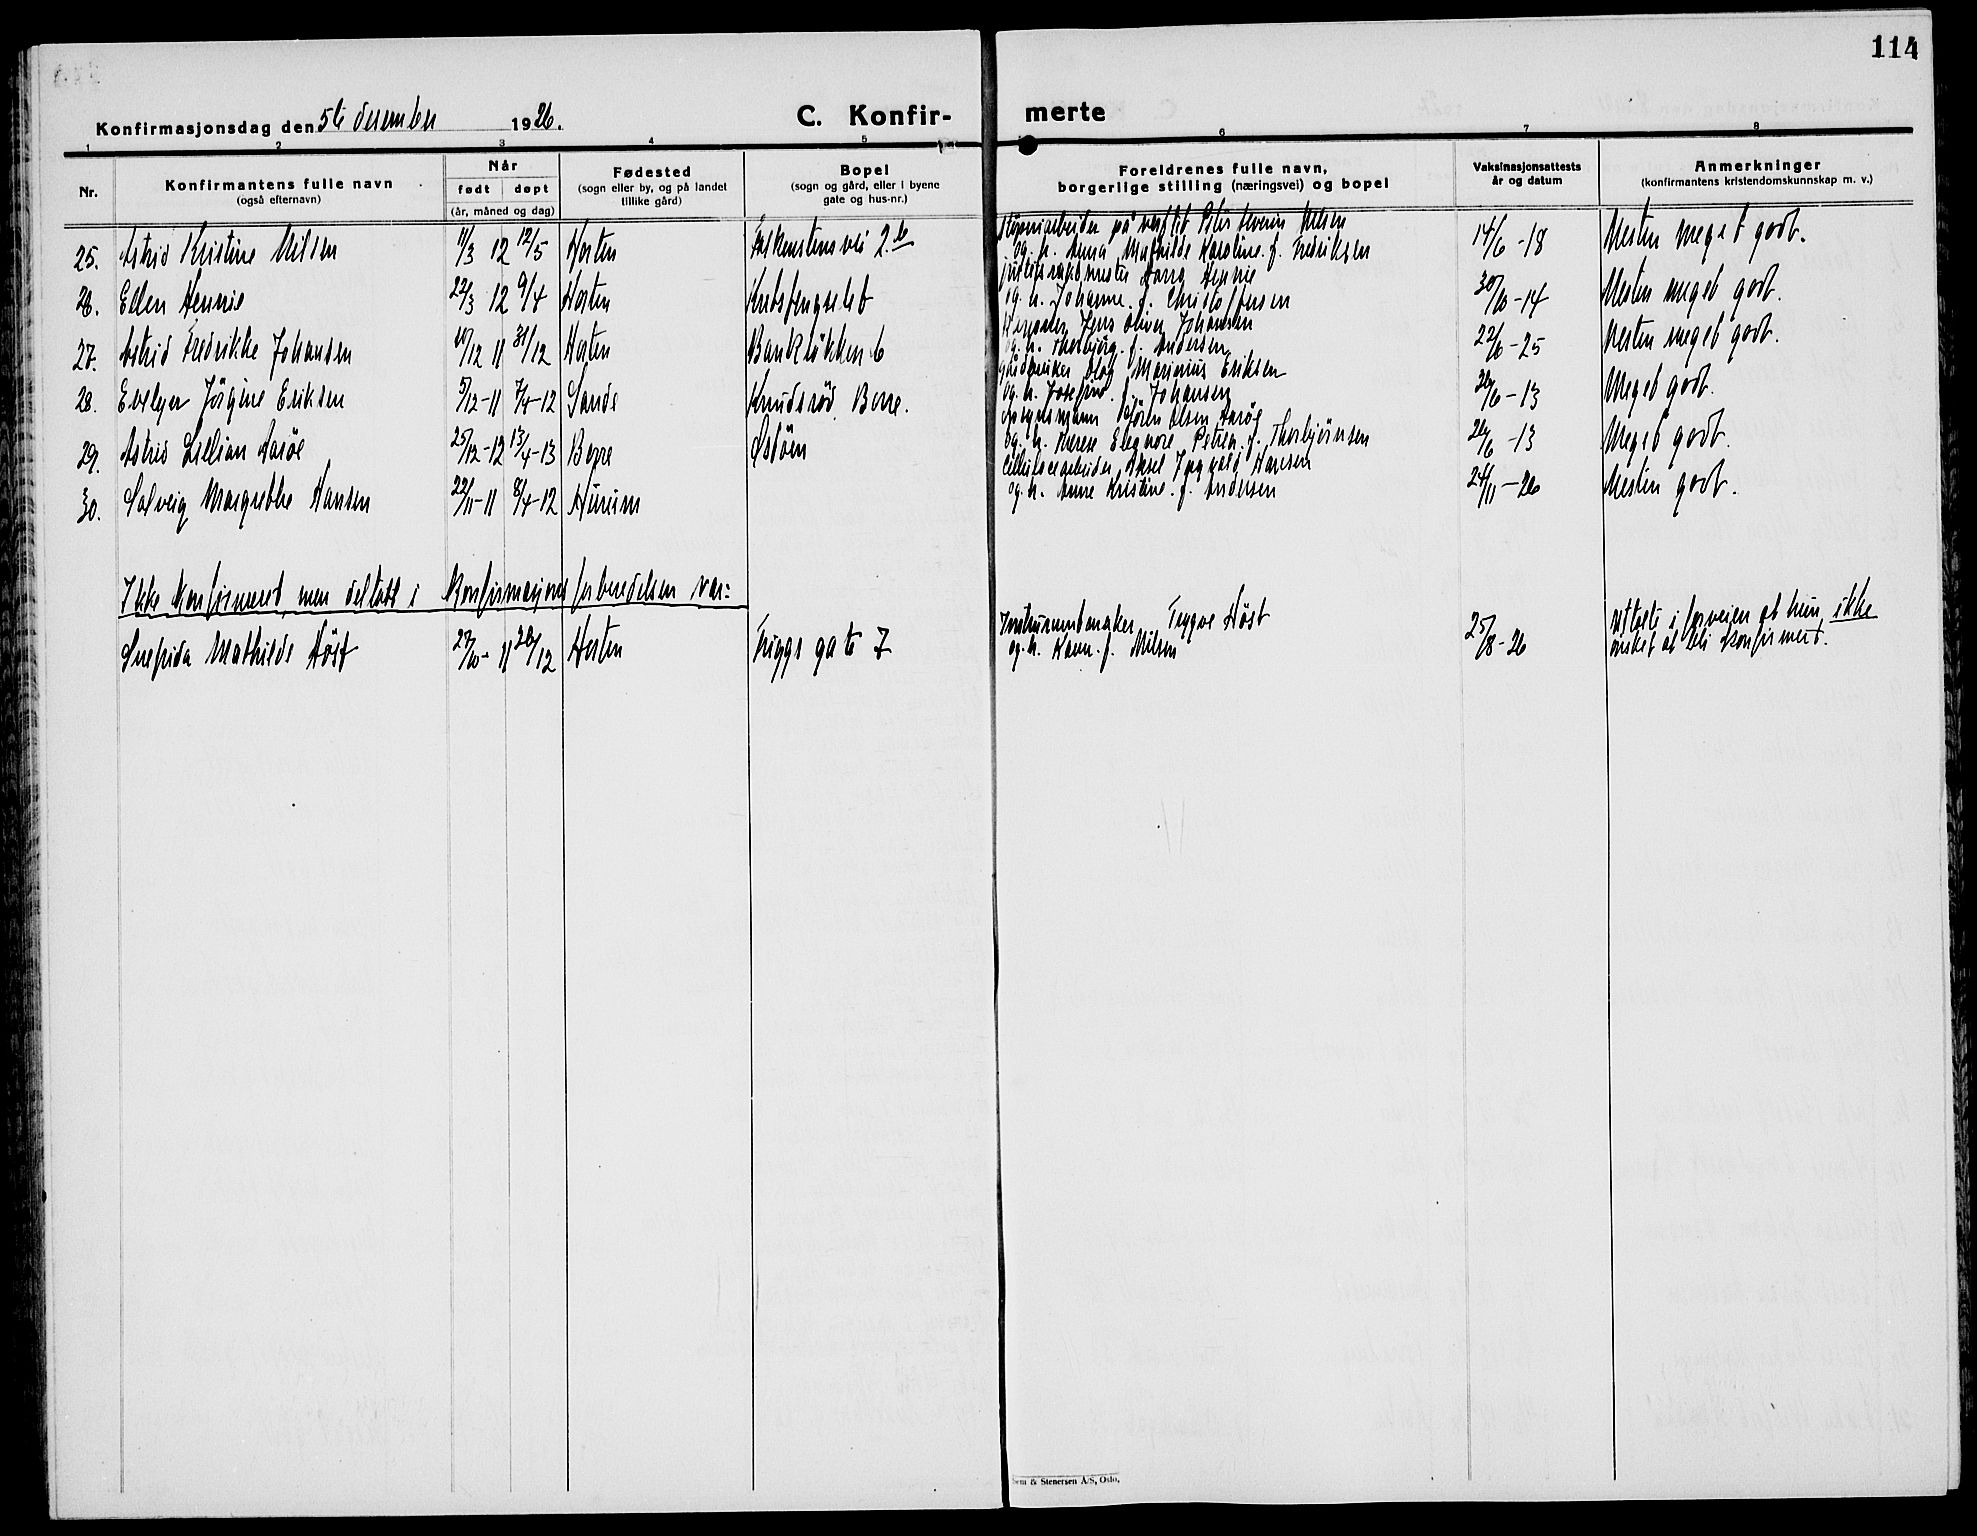 114
Konfirmasjonsdag den 5te desember 1926.
C. Konfir-
merte
1 2 3 4 5 6 7 8
Nr.
Konfirmantens fulle navn
(også efternavn)
Når
født døpt
(år, måned og dag)
Fødested
(sogn eller by, og på landet
tillike gård)
Bopel
(sogn og gård, eller i byene
gate og hus-nr.)
Foreldrenes fulle navn,
borgerlige stilling (næringsvei) og bopel
Vaksinasjonsattests
år og datum
Anmerkninger
(konfirmantens kristendomskunnskap m. v.)
Støperiarbeider på verftet Peter Severin Nilsen
25. Astrid Kristine Nilsen 11/3 12 12/5 Horten Falkenstensvei 2b og h. Anna Mathilde Karoline f. Fredriksen 14/6 - 18 Nesten meget godt.
Hennie
26. Ellen Hennie 22/3 12 9/4 Horten Kretsfengselet og h. Johanne f. Christoffersen 30/10 - 14 Nesten meget godt.
Jens Oliver Johansen
27. Astrid Fredrikke Johansen 10/12 11 31/12 Horten Bankeløkken 6 og h. Thorbjørg f. Andersen 22/6 - 25 Nesten meget godt.
Gårdbruker Olaf Marinius Eriksen
28. Evelyn Jørgine Eriksen 5/12 - 11 7/4 - 12 Sande Knudsrød, Borre. og h. Josefine f. Johansen 26/6 - 13 Meget godt.
Søren Olsen Aarøe
29. Astrid Lillian Aarøe 25/12 - 12 13/4 - 13 Borre Østøen og h. Therese Eleonore Petrea f. Thorbjørnsen 26/6 - 13 Meget godt.
Cellulosearbeider Aksel Ingvald Hansen
30. Solveig Margrethe Hansen 22/11 - 11 8/4 - 12 Hurum og h. Anne Kristine f. Andersen 24/11 - 26 Nesten godt.
Ikke konfirmert, men deltatt i konfirmasjonsforberedelsen var:
Instrumentmaker Trygve Høst
uttalte i forveien at hun ikke
Snefrida Mathilde Høst 27/10 - 11 26/12 Horten Friggs gate 7 og h. Karen f. Nilsen 25/8 - 26 ønsket at bli konfirmert.
Sem & Stenersen A/S, Oslo.